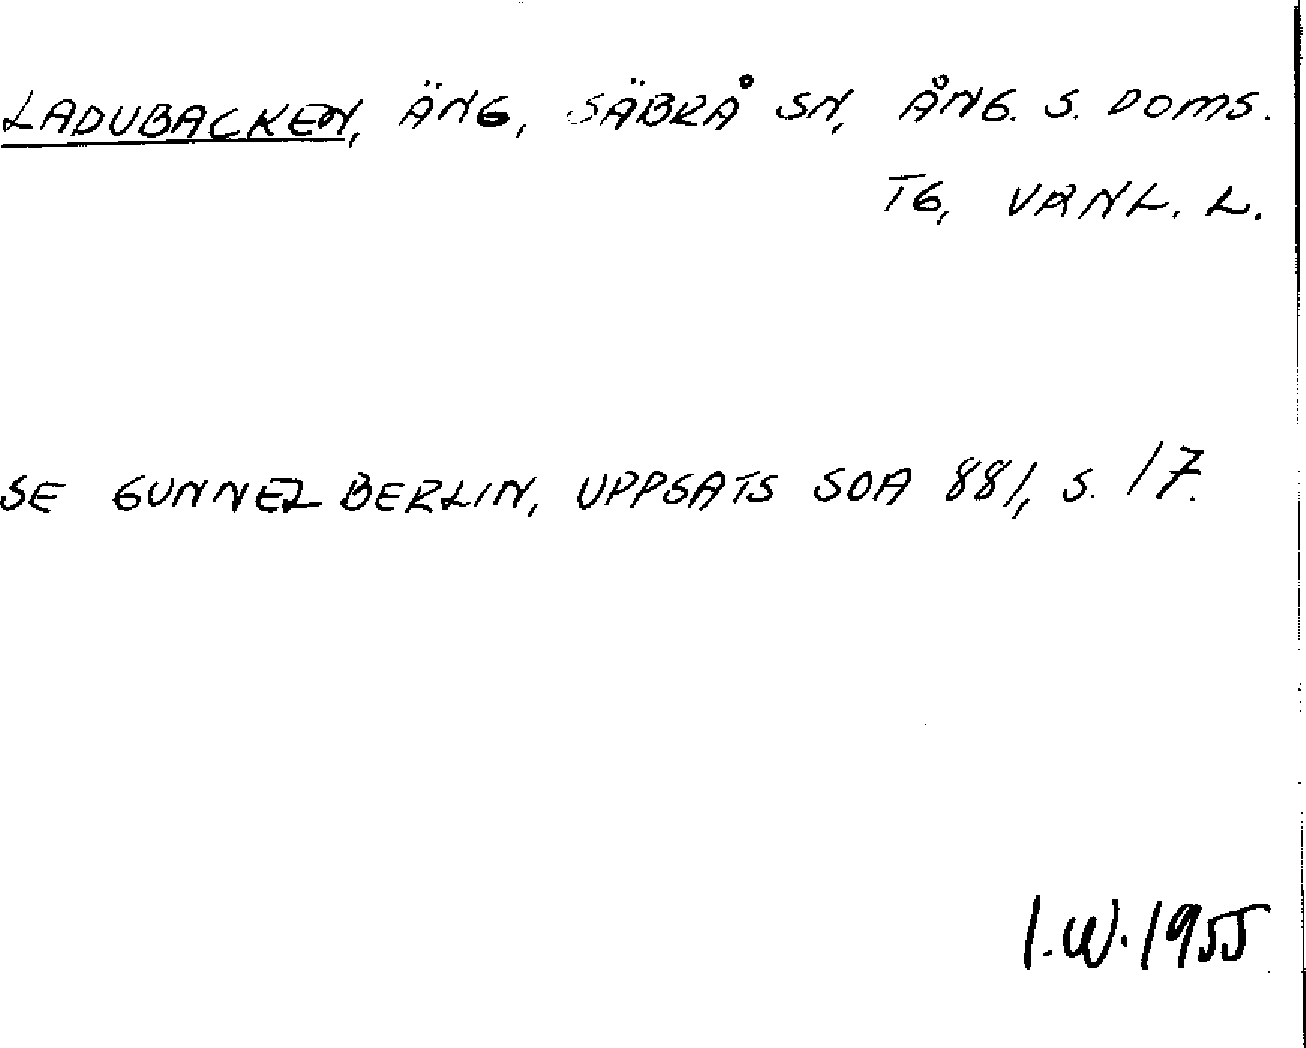 LADUBACKEN, ÄNG, SÄBRÅ SN, ÅNG. S. DOMS.
TG, VRNL. L.
SE GUNNEL BERLIN, UPPSATS SOA 881, S. 17.
I.W. 1955